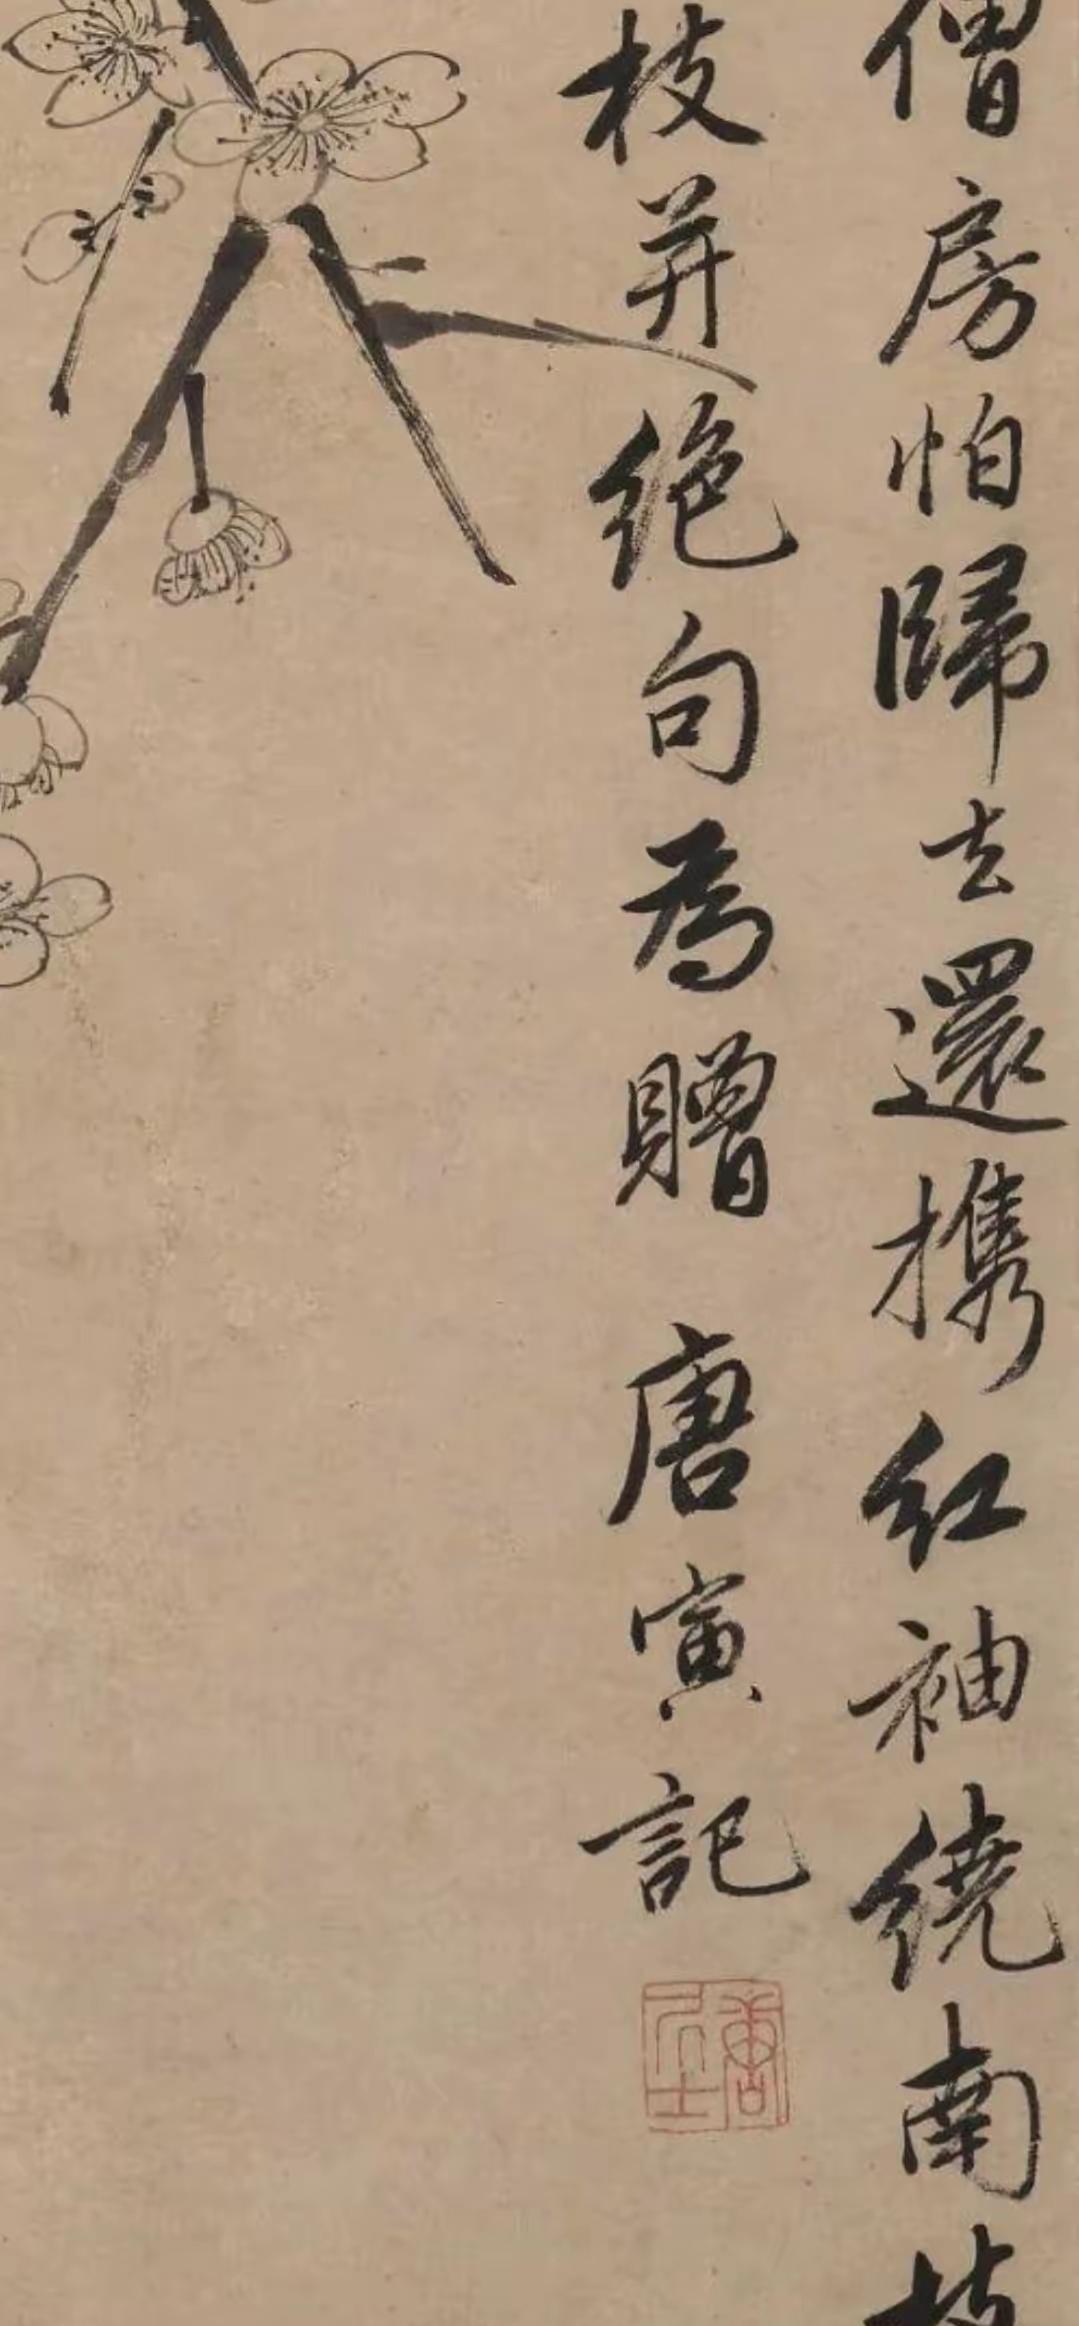 僧房怕歸去還携紅袖繞南枝
枝并絕句為贈 唐寅記
唐居士